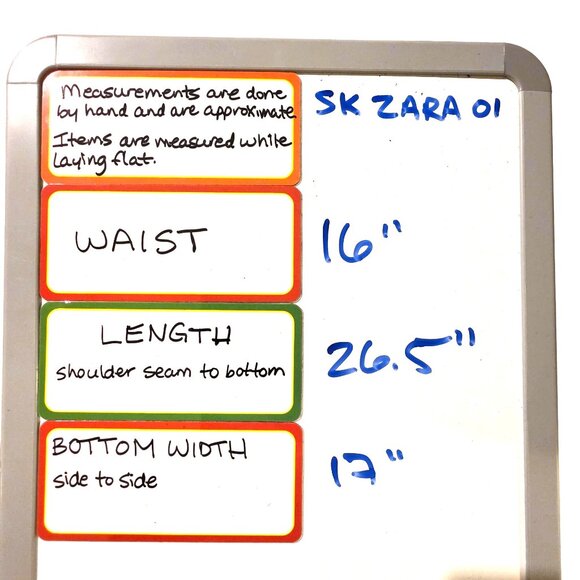 Measurements are done
by hand and are approximate
Items are measured while
laying flat.
SK ZARA 01
WAIST
16"
LENGTH
shoulder seam to bottom
26.5"
BOTTOM WIDTH
side to side
17"